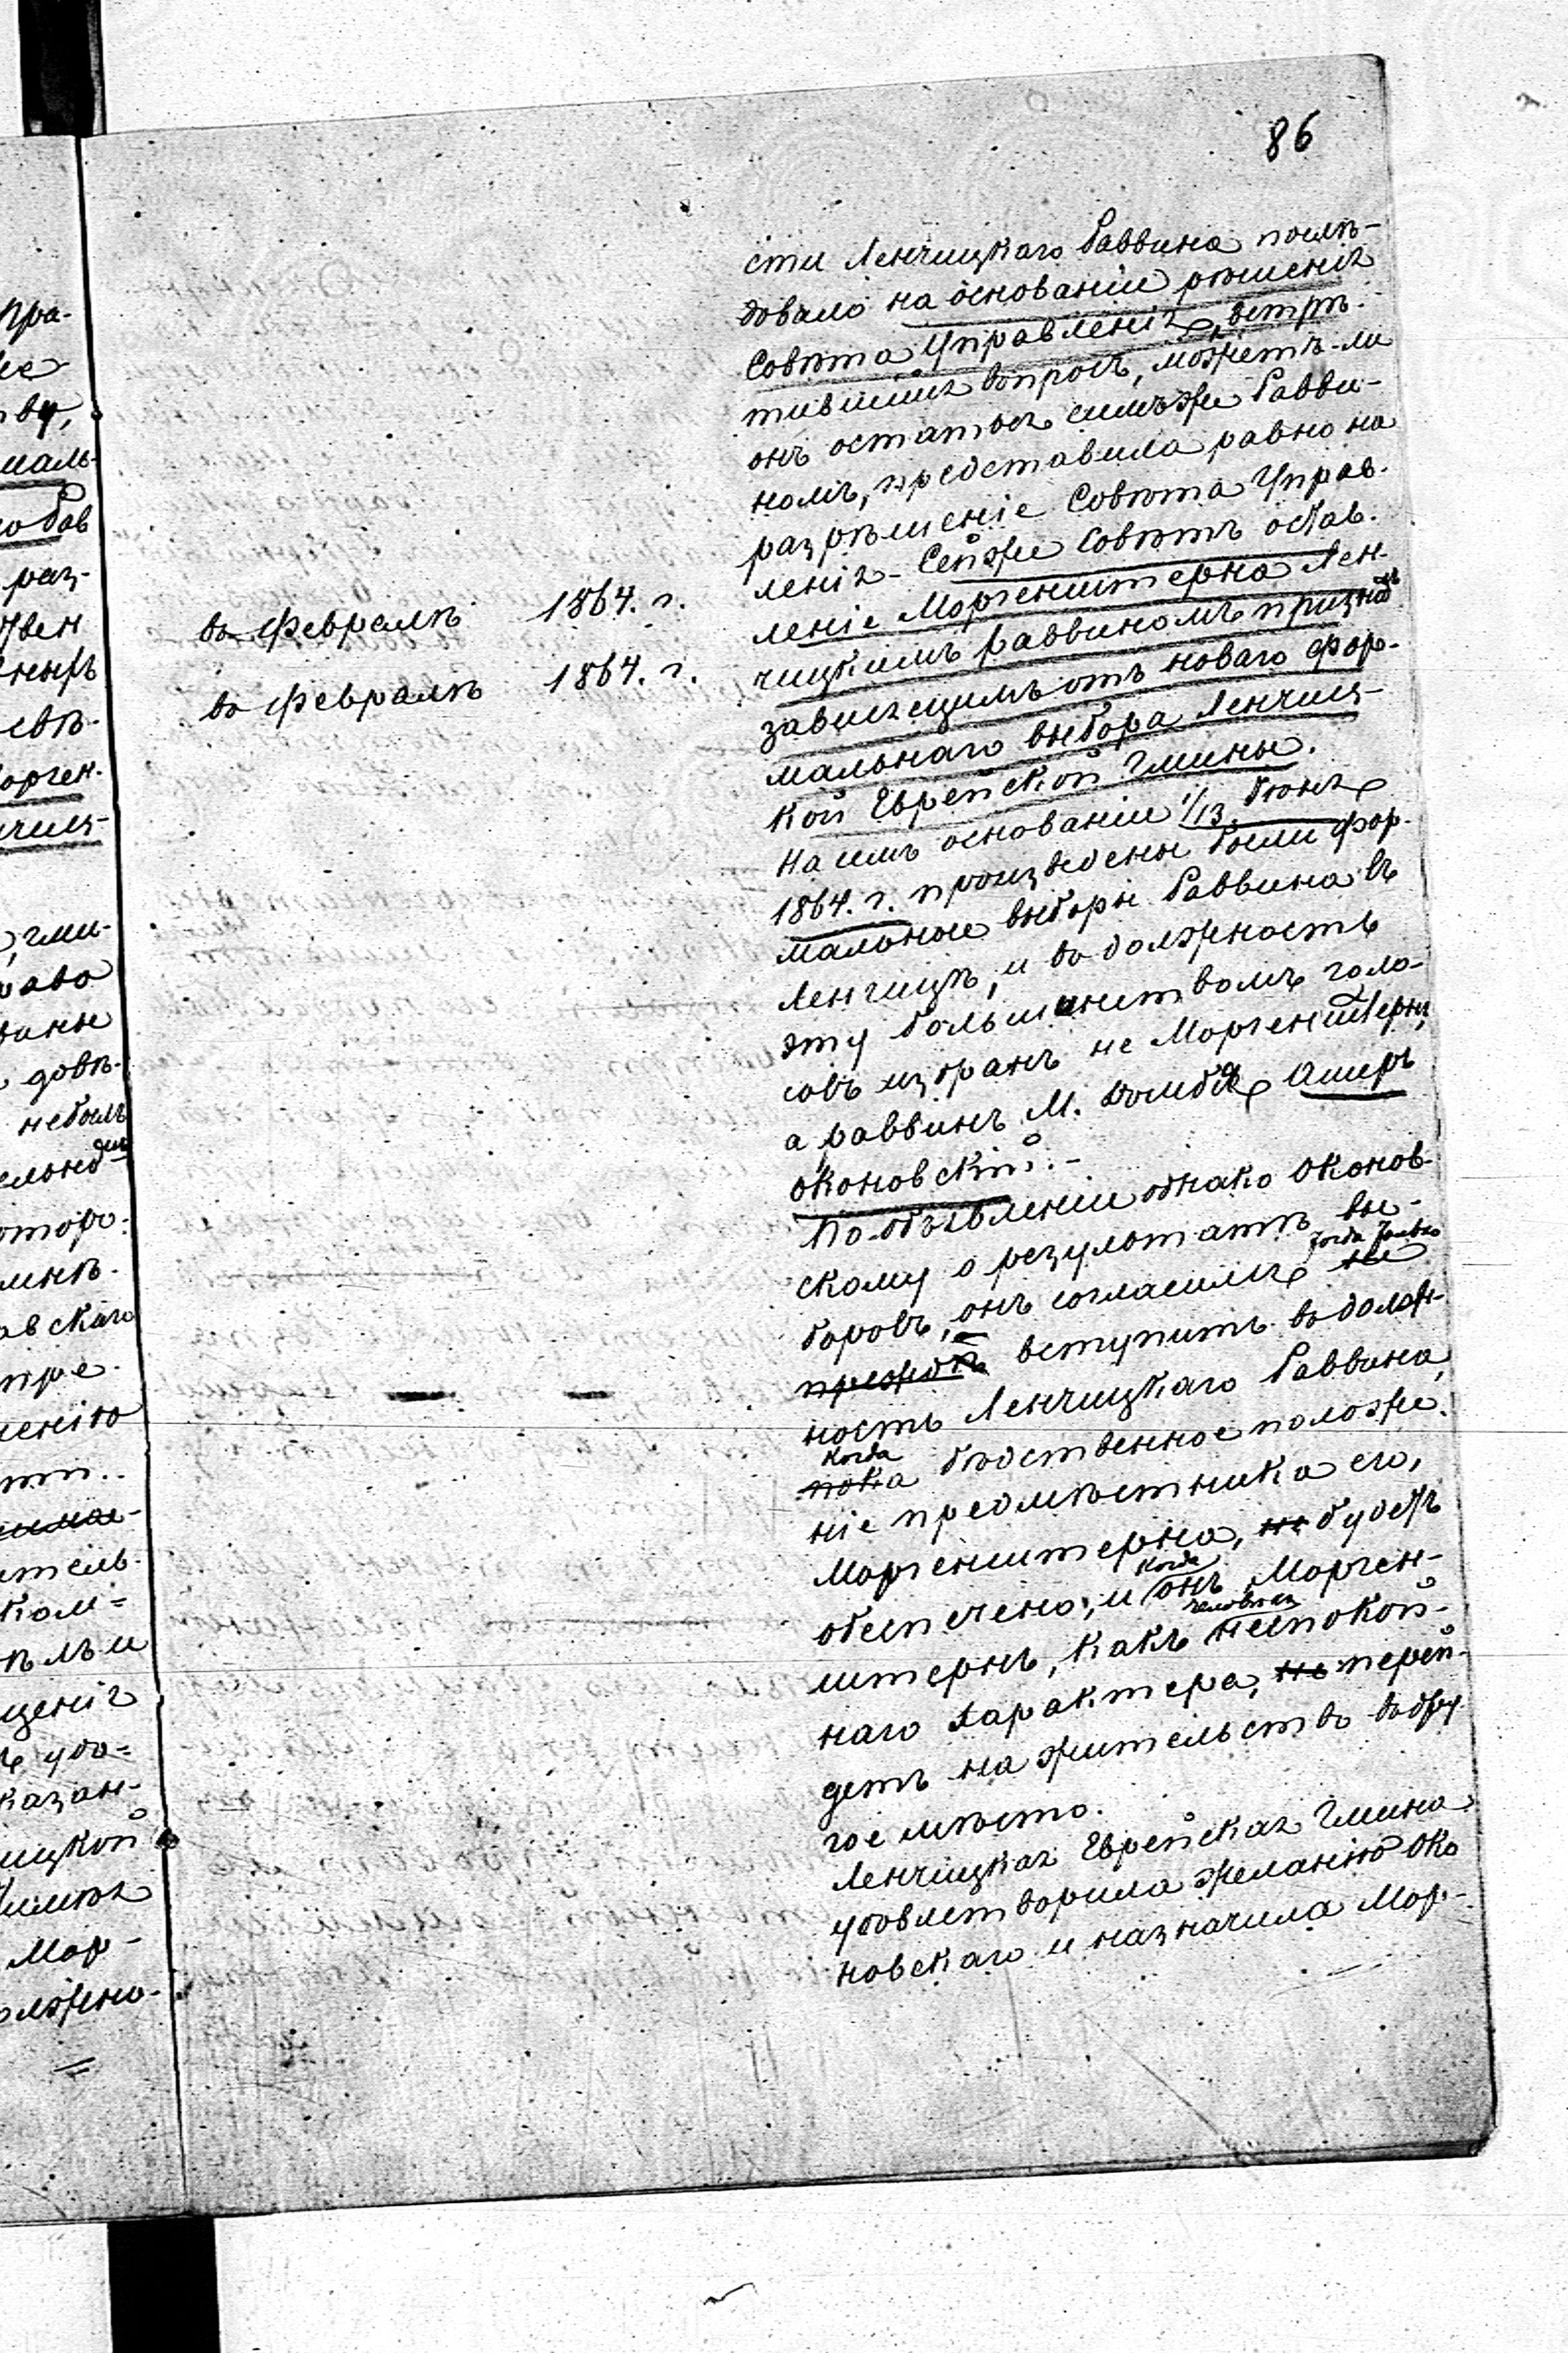 86
сти Ленчицкаго Раввина послѣ-
довало на основаніи рѣшенія
Совѣта Управленія, встрѣ-
тившія вопросъ, можетъ-ли
онъ остаться симъ же Равви-
номъ, представила равно на
разрѣшеніе Совѣта Управ-
ленія - Сей же Совѣтъ остав-
въ Февралѣ 1864. г.
леніе Моргенштерна Лен-
чицкимъ раввиномъ призналъ
въ Февралѣ 1864. г.
зависящимъ отъ новаго фор-
мальнаго выбора Ленчиц-
кой Еврейской Гмины.
На семъ основаніи 1/13. Юня
1864. г. произведены были фор-
мальные выборы Раввина въ
Ленчицѣ, и въ должность
эту большинствомъ голо-
совъ избранъ не Моргенштернъ,
а раввинъ М. Домбя Аширъ
Оконовскій. -
По объявленіи однако Оконов-
скому о результатѣ вы-
боровъ, онъ согласился не тогда только
прежде вступить въ долж-
ность Ленчицкаго Раввина,
когда
пока бѣдственное положе-
ніе предмѣстника его,
Моргенштерна, не будетъ
обеспечено, и когда онъ, Морген-
штернъ, какъ человѣкъ неспокой-
наго характера, не перей-
детъ на жительство въ дру
гое мѣсто.
Ленчицкая Еврейская Гмина
удовлетворила желанію Око
новскаго и назначила Мор-
пра-
ву,
маль-
раз-
евѣ-
орген-
чиц-
гми-
раво
довѣ-
небылъ
оторо-
авскаго
пре-
ленію
итель-
ком=
ценія
удо=
казан-
ицкой
Мор-
олжно-